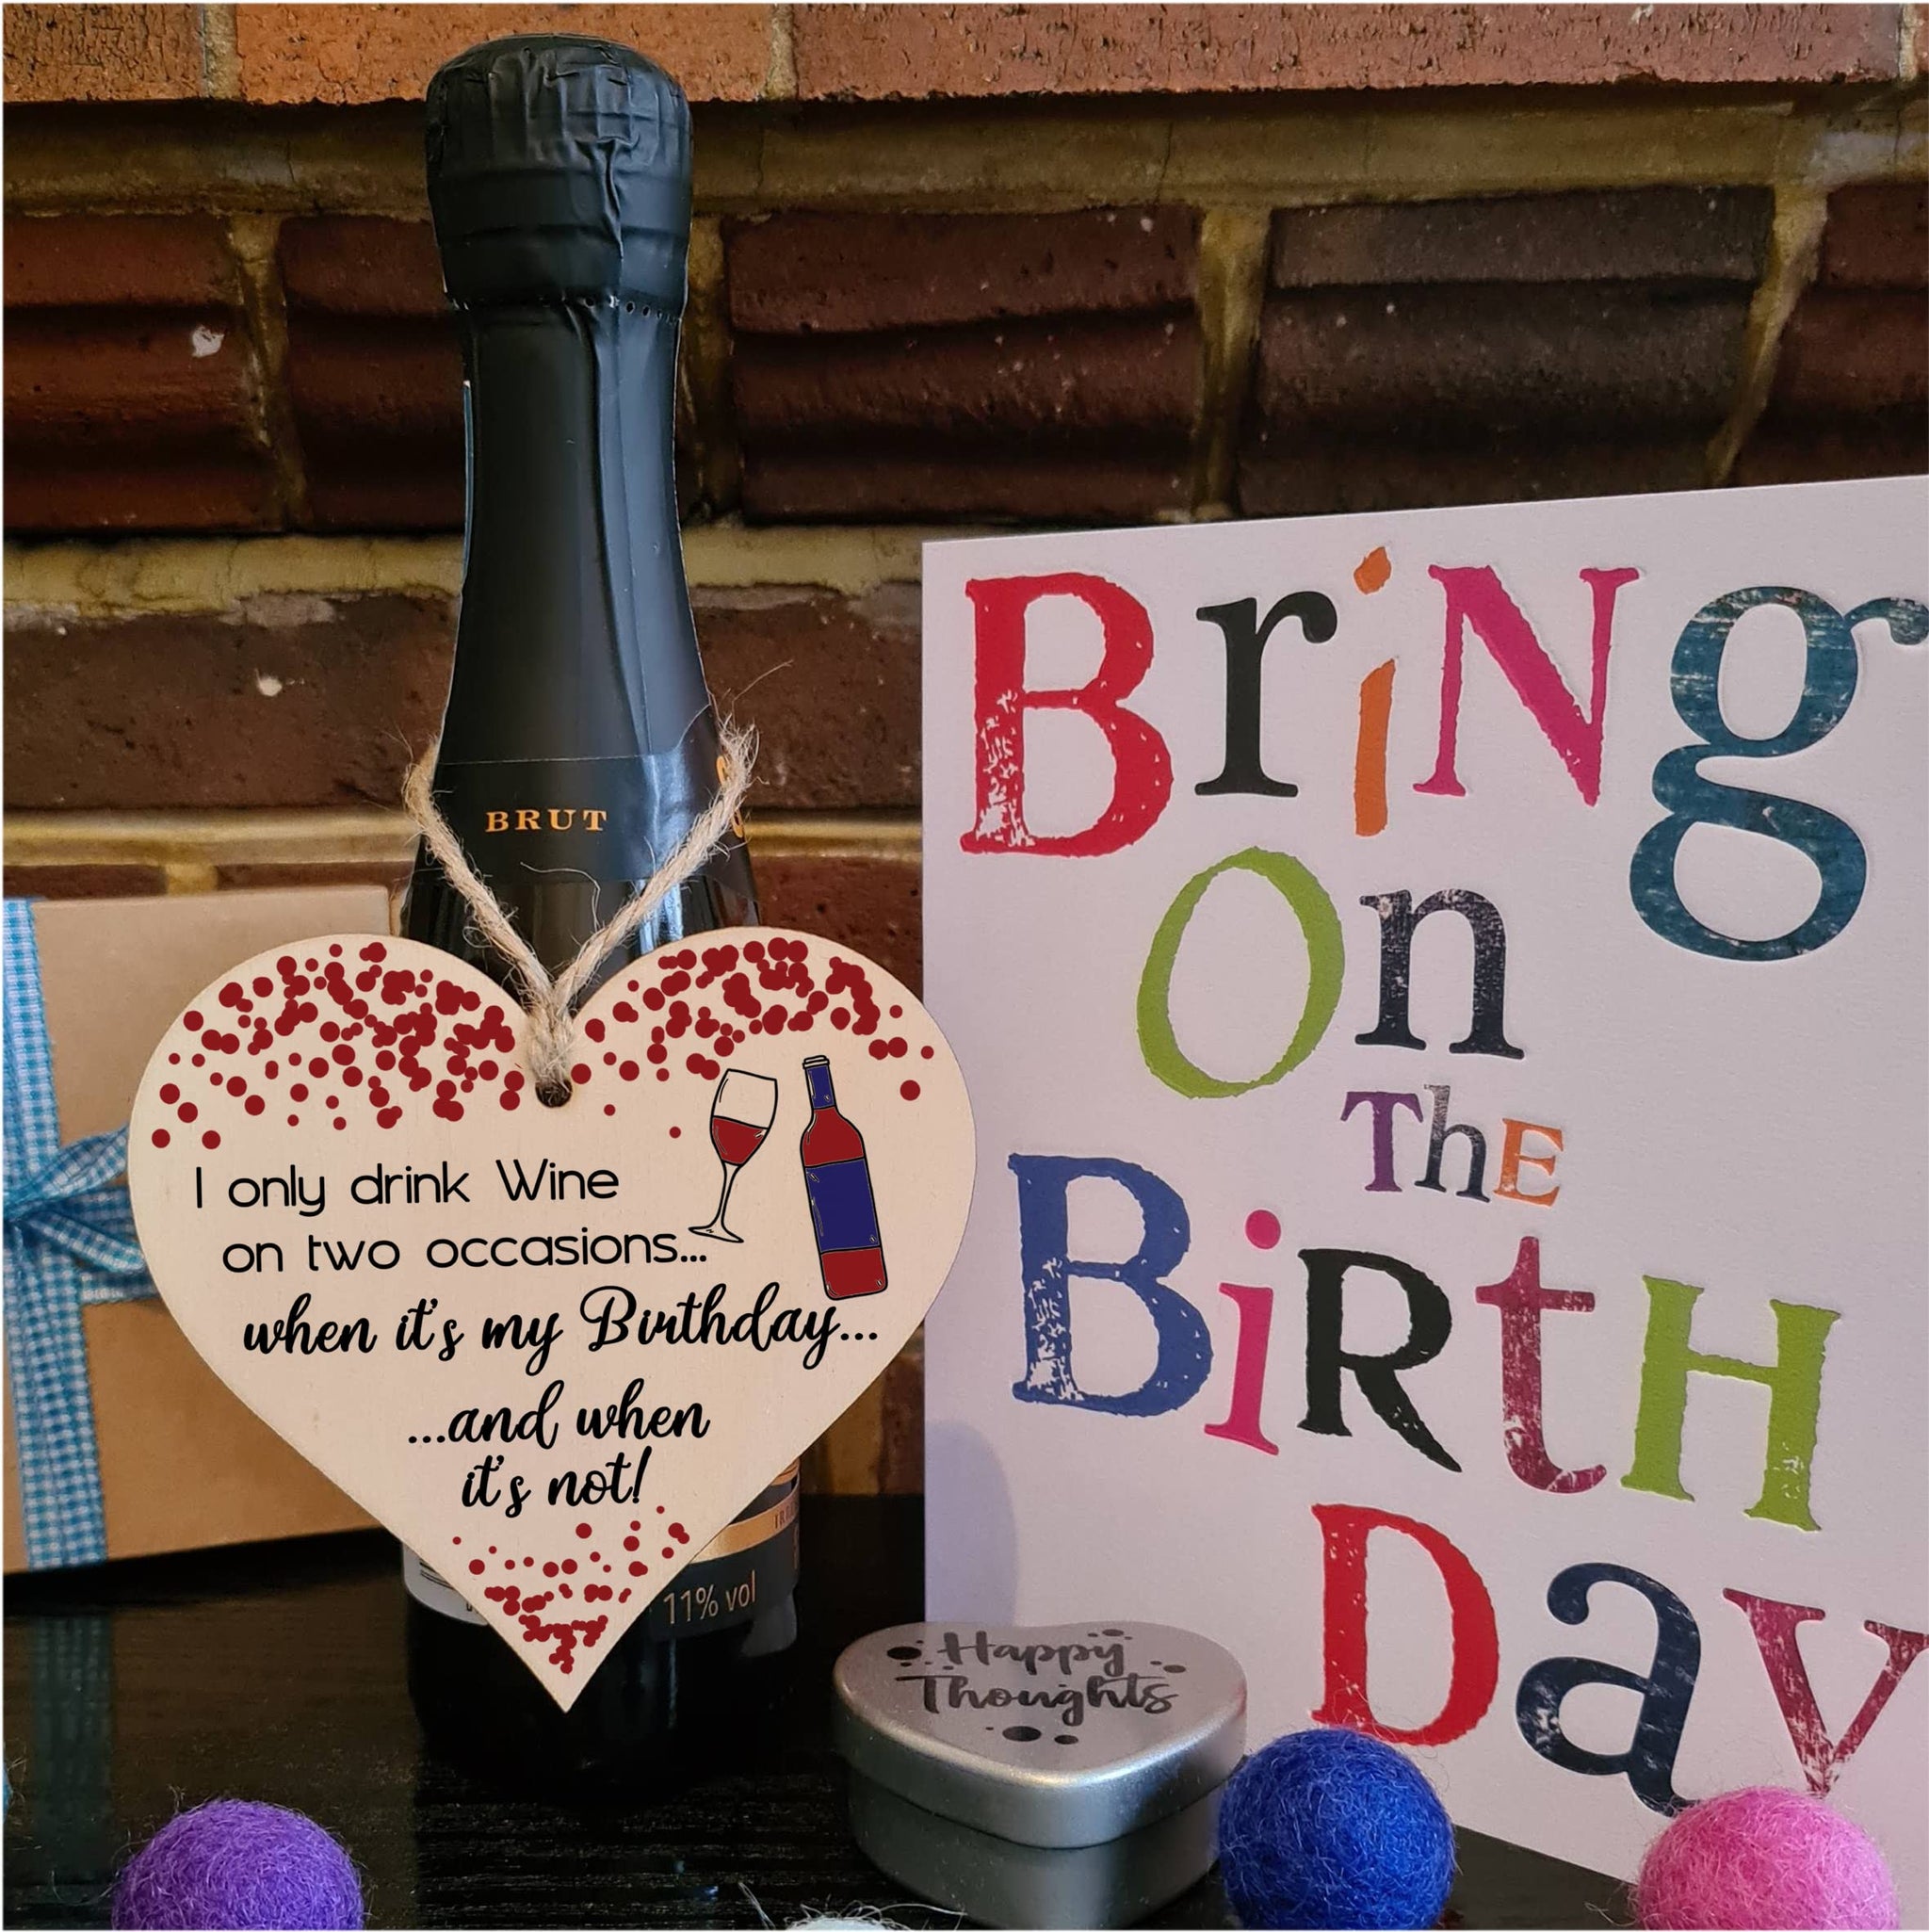 BRUT
I only drink Wine
on two occasions...
when it's my Birthday...
...and when
it's not!
11% vol
Happy
Thoughts
BriNg
On
ThE
BiRtH
Day